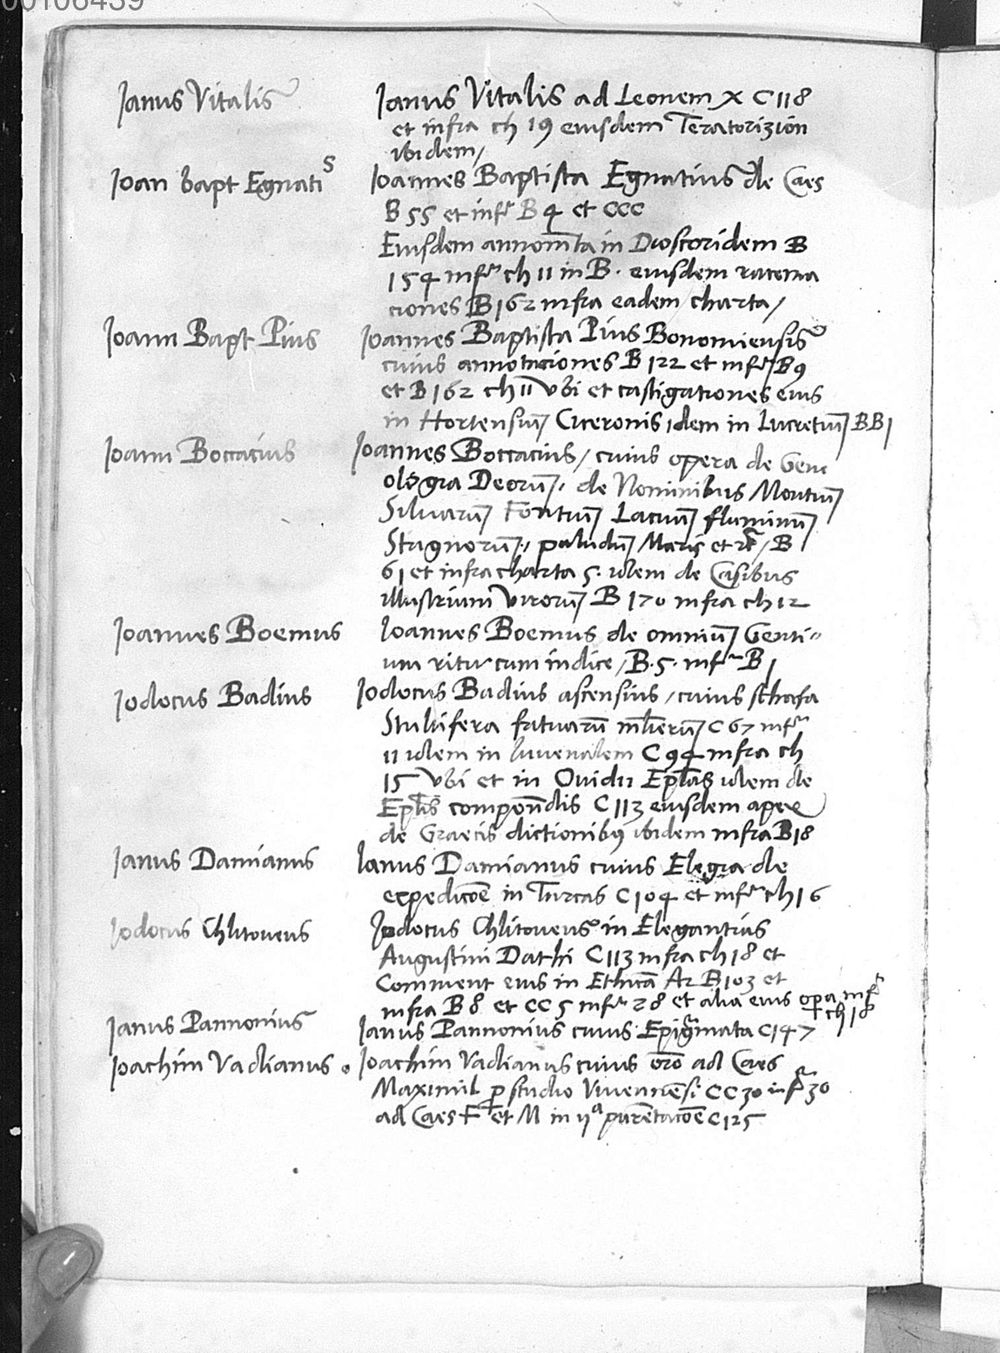 00106439
Ianus Vitalis Ianus Vitalis ad Leonem X C 118
et infra ch 19 eiusdem Teratorizion
ibidem/
Ioan bapt Egnatis Ioannes Baptista Egnatius de Caes
B 55 et infr B 4 et CCC
Eiusdem annomta in Dioscoridem B
154 infr ch 11 in B. eiusdem racema
ciones B 162 infra eadem charta/
Ioann Bapt Pius Ioannes Baptista Pius Bononiensis
cuius annotaciones B 122 et infr B 9
et B 162 ch 11 Vbi et castigationes eius
in Hortensiu Ciceronis idem in Lucretiu BB1
Ioann Boccacius Ioannes Boccacius/ cuius opera de Gene
ologia Deoru, de Nominibus Montiu
Siluaru Fontiu Lacuu fluminu
Stagnoru, paludu Maris et rc/ B
61 et infra charta 5. idem de Casibus
illustrium viroru B 170 infra ch 12
Ioannes Boemus Ioannes Boemus de omniu Genti-
um ritu cum indice/ B. 5. infr B 1
Iodocus Badius Iodocus Badius ascensius/ cuius schafa
Stultifera fatuaru mlieru C 67 infr
11 idem in Iuuenalem C 94 infra ch
15 Vbi et in Ouidii Eplas idem de
Eplis componedis C 113 eiusdem apex
de Graecis dictionibus ibidem infra B 18
Ianus Damianus Ianus Damianus cuius Elegia de
expedicoe in Turcas C 104 et infr ch 16
Iodocus Chlitoueus Iodocus Chlitoueus in Elegantias
Augustini Dathi C 113 infra ch 18 et
Comment eius in Ethica Ar B 103 et
infra B 8 et CC 5 infr 28 et alia eius opa infr
ch 18
Ianus Pannonius Ianus Pannonius cuius Epigrmata C 147
Ioachim Vadianus Ioachim Vadianus cuius oro ad Caes
Maximil p studio Viennensi CC 30 infr 30
ad Caes F et M in 11a parentacoe C 125